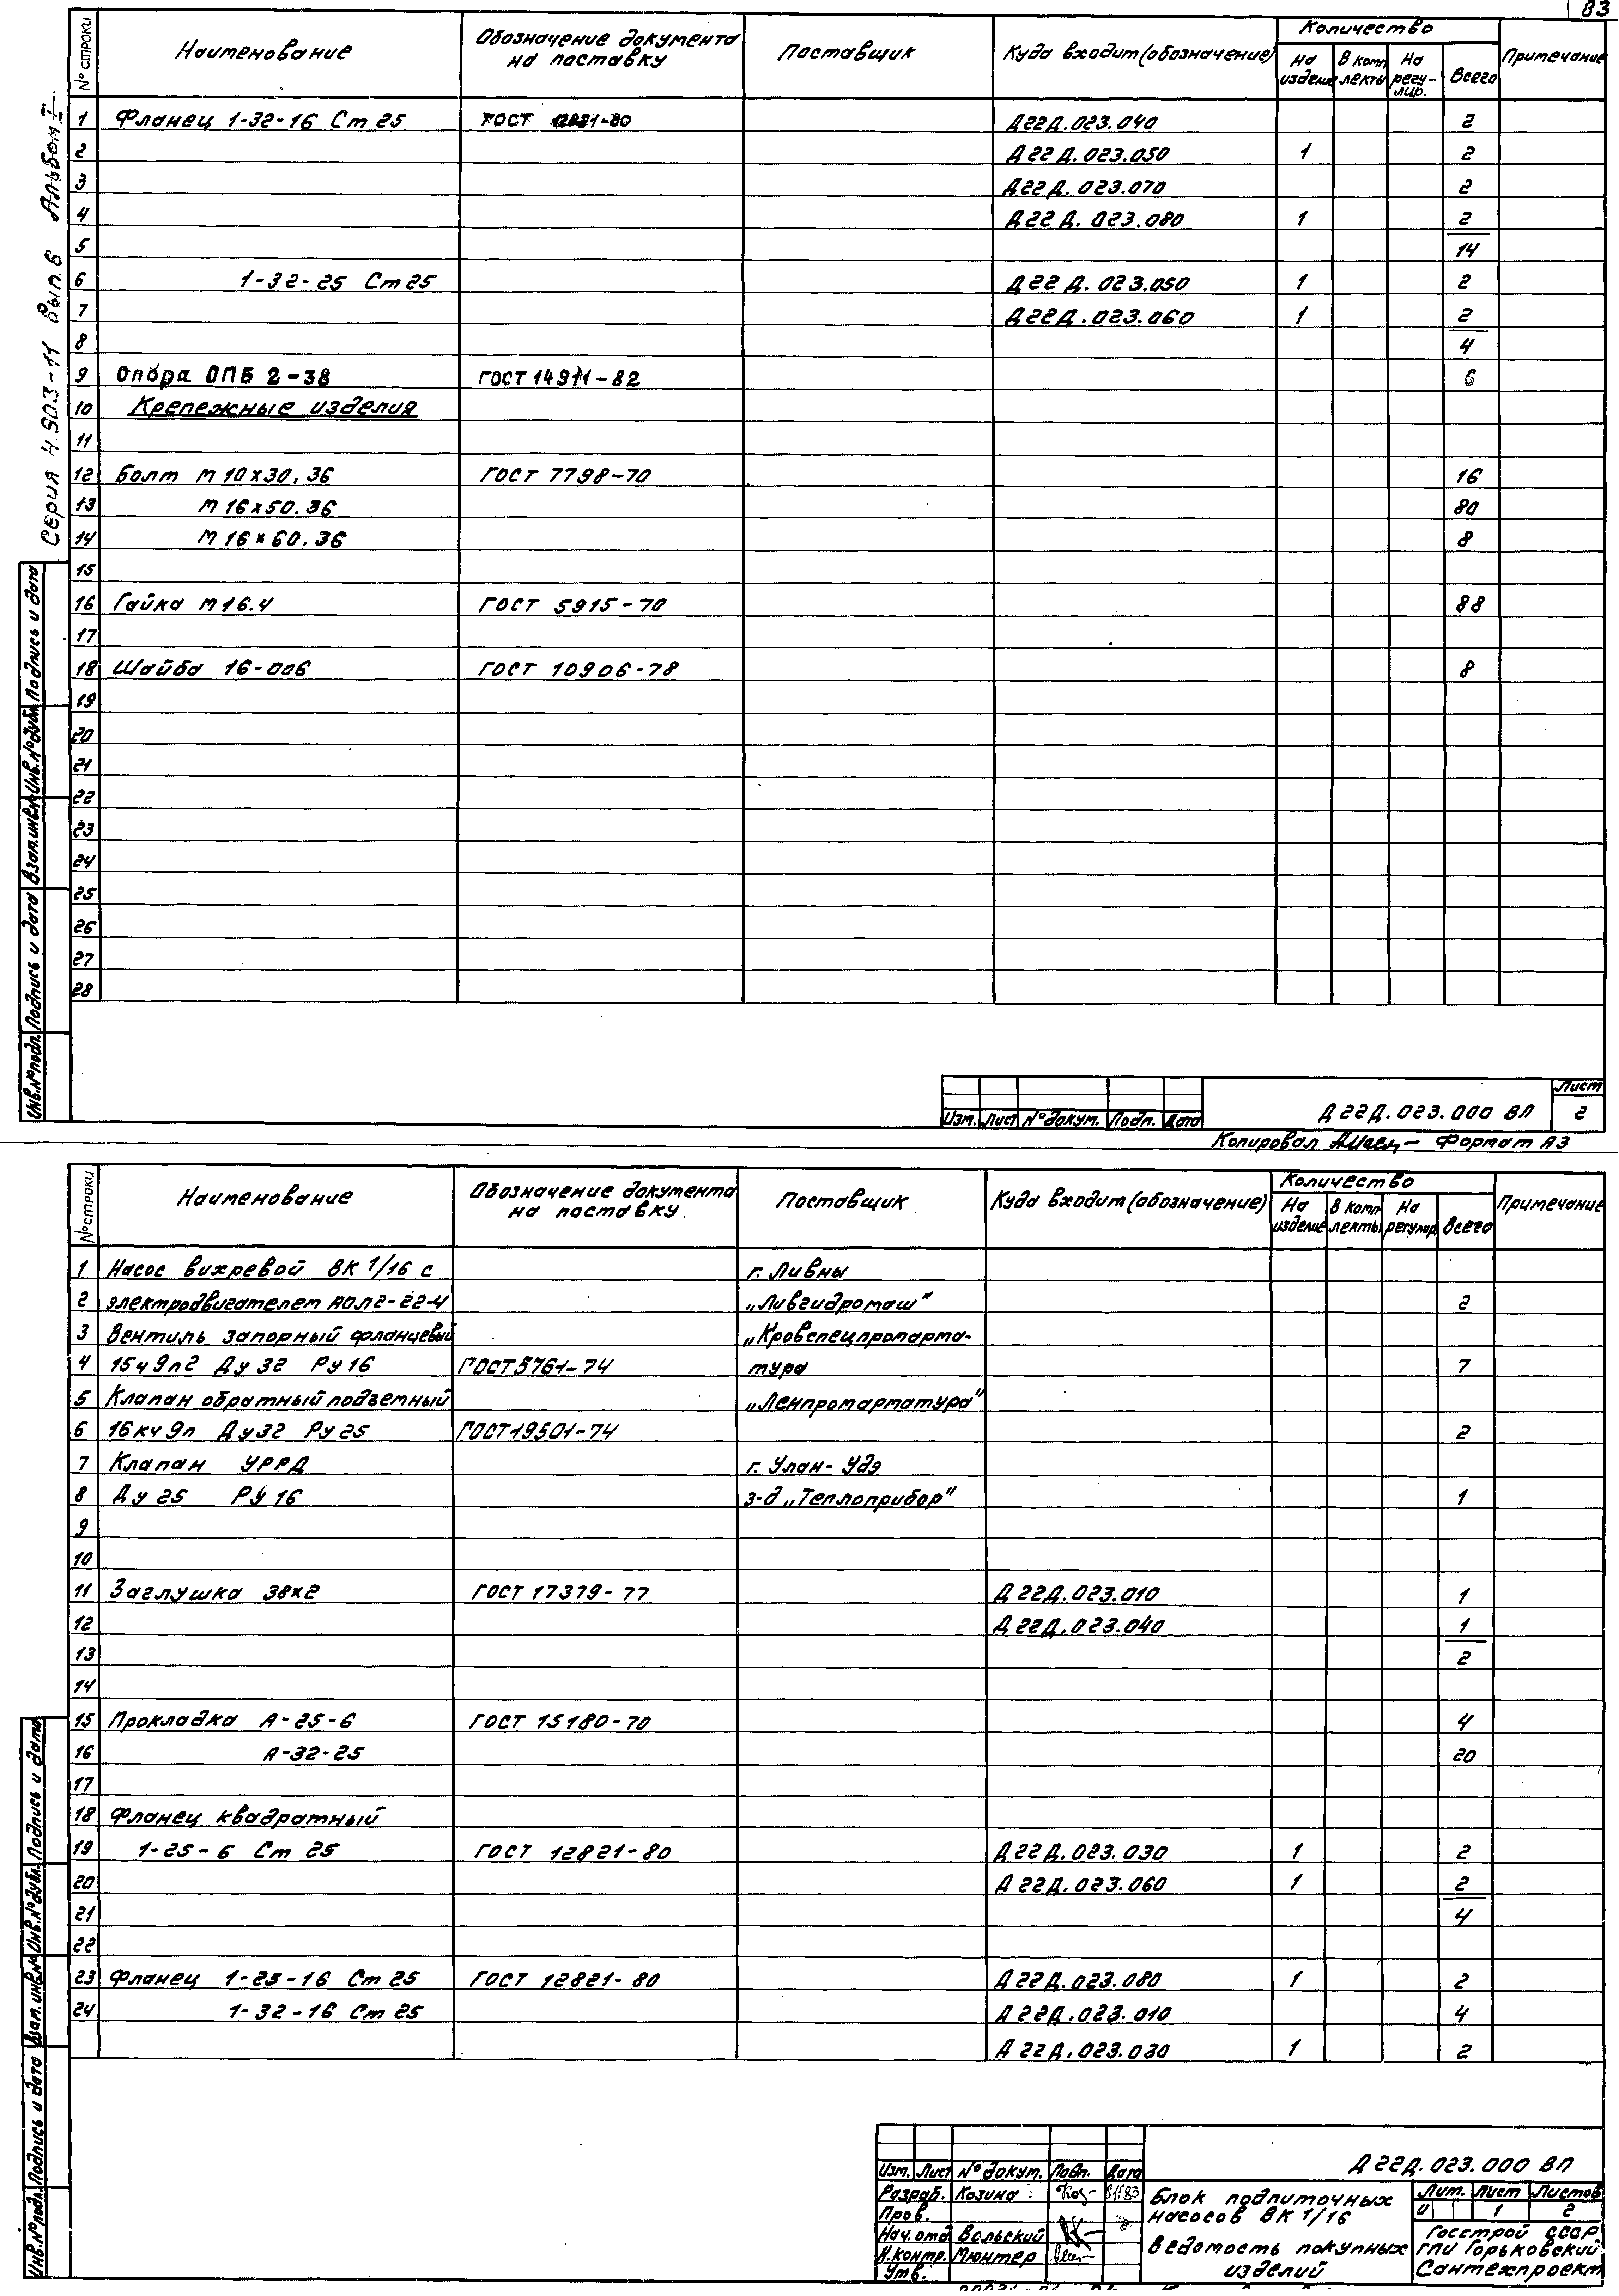 83
Серия 4.903-11 Вып. 6 Альбом I
№ строки Наименование Обозначение документа на поставку Поставщик Куда входит (обозначение) Количество Примечание
На изделие В комплекты На регулир. Всего
1 Фланец 1-32-16 Ст 25 ГОСТ 12821-80 Д22Д.023.040 2
2 Д22Д.023.050 1 2
3 Д22Д.023.070 2
4 Д22Д.023.080 1 2
5 14
6 1-32-25 Ст 25 Д22Д.023.050 1 2
7 Д22Д.023.060 1 2
8 4
9 Опора ОПБ 2-38 ГОСТ 14911-82 6
10 Крепежные изделия
11
12 Болт М 10х30.36 ГОСТ 7798-70 16
13 М 16х50.36 80
14 М 16х60.36 8
15
16 Гайка М16.4 ГОСТ 5915-70 88
17
18 Шайба 16-006 ГОСТ 10906-78 8
19
20
21
22
23
24
25
26
27
28
Инв.№ подл. Подпись и дата Взам.инв.№ Инв.№ дубл. Подпись и дата
Изм. Лист № докум. Подп. Дата
Д22Д.023.000 ВП
Лист
2
Копировал Формат А3
№ строки Наименование Обозначение документа на поставку Поставщик Куда входит (обозначение) Количество Примечание
На изделие В комплекты На регулир. Всего
1 Насос вихревой ВК 1/16 с г. Ливны
2 электродвигателем АОЛ2-22-4 „Ливгидромаш" 2
3 Вентиль запорный фланцевый „Кровспецпромарма-
4 15ч9п2 Ду 32 Ру 16 ГОСТ 5761-74 тура 7
5 Клапан обратный подъемный „Ленпромарматура"
6 16кч9п Ду32 Ру 25 ГОСТ 19501-74 2
7 Клапан УРРД г. Улан-Удэ
8 Ду 25 РУ 16 з-д „Теплоприбор" 1
9
10
11 Заглушка 38х2 ГОСТ 17379-77 Д22Д.023.010 1
12 Д22Д.023.040 1
13 2
14
15 Прокладка А-25-6 ГОСТ 15180-70 4
16 А-32-25 20
17
18 Фланец квадратный
19 1-25-6 Ст 25 ГОСТ 12821-80 Д22Д.023.030 1 2
20 Д22Д.023.060 1 2
21 4
22
23 Фланец 1-25-16 Ст 25 ГОСТ 12821-80 Д22Д.023.080 1 2
24 1-32-16 Ст 25 Д22Д.023.010 4
Д22Д.023.030 1 2
Инв.№ подл. Подпись и дата Взам.инв.№ Инв.№ дубл. Подпись и дата
Изм. Лист № докум. Подп. Дата
Д22Д.023.000 ВП
Разраб. Козина 11.83
Пров.
Нач.отд Вольский
Н.контр. Мюнтер
Утв.
Блок подпиточных
насосов ВК 1/16
Ведомость покупных
изделий
Лит. Лист Листов
И 1 2
Госстрой СССР
ГПИ Горьковский
Сантехпроект